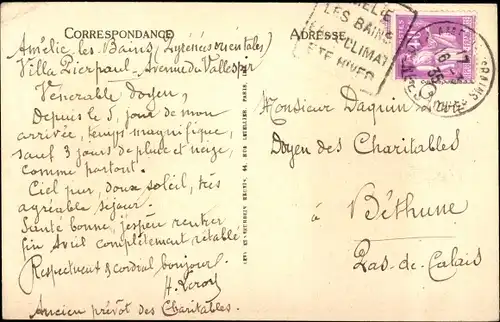 CORRESPONDANCE
Amélie les Bains, Pyrénées orientales
Villa Pierpaul - Avenue du Vallespir
Vénérable Doyen,
Depuis le 5, jour de mon
arrivée, temps magnifique,
sauf 3 jours de pluie et neige,
comme partout.
Ciel pur, doux soleil, très
agréable séjour.
Santé bonne, j'espère rentrer
fin avril complètement rétabli
Respectueux & cordial bonjour.
H. Leroy
Ancien prévôt des Charitables.
ADRESSE
AMELIE
LES BAINS
CLIMAT
ETE HIVER
Monsieur Daquin
Doyen des Charitables
à Béthune
Pas-de-Calais